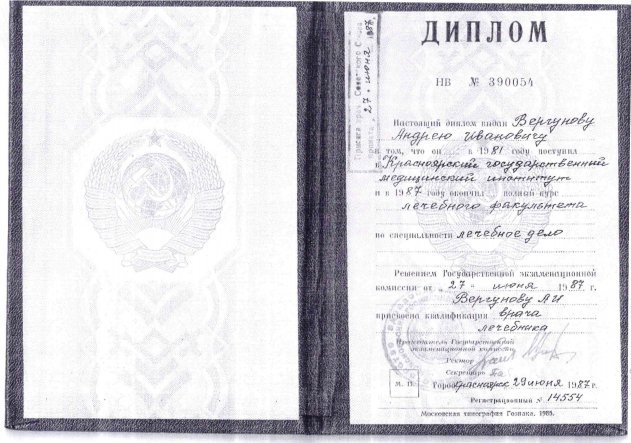 ДИПЛОМ
НВ № 390054
Настоящий диплом выдан Вергунову
Андрею Ивановичу
в том, что он в 1981 году поступил
в Красноярский государственный
медицинский институт
и в 1987 году окончил полный курс
лечебного факультета
по специальности лечебное дело
Решением Государственной экзаменационной
комиссии от „27“ июня 1987 г.
Вергунову АИ
присвоена квалификация врача
лечебника
Председатель Государственной
экзаменационной комиссии
Ректор
Секретарь
М. П. Город Красноярск 29 июня 1987 г.
Регистрационный № 14554
Московская типография Гознака. 1985.
Присяга врача Советского Союза
принята „27“ июня 1987